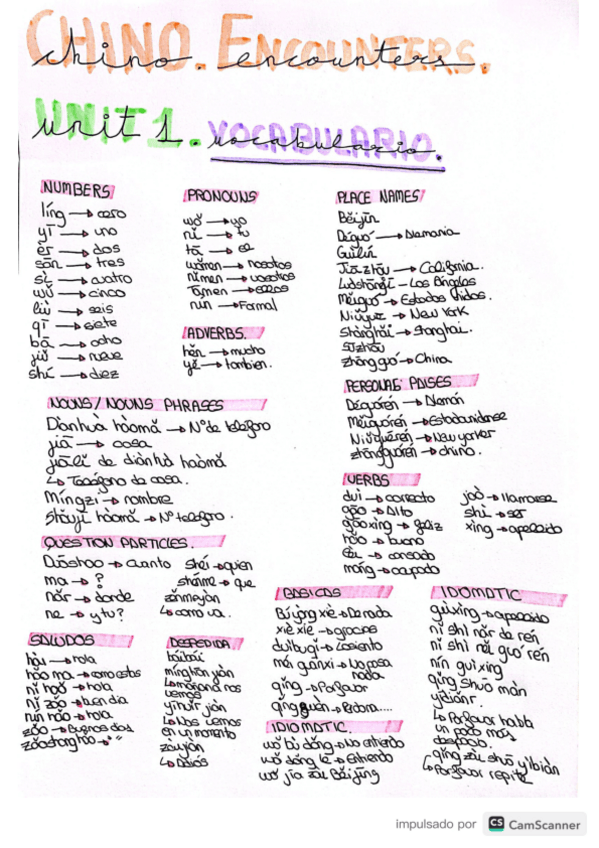 CHINO. ENCOUNTERS.
chino. encounters.
UNIT 1. VOCABULARIO.
unit 1. vocabulario.
NUMBERS
líng → cero
yī → uno
èr → dos
sān → tres
sì → cuatro
wǔ → cinco
liù → seis
qī → siete
bā → ocho
jiǔ → nueve
shí → diez
PRONOUNS
wǒ → yo
nǐ → tu
tā → el
wǒmen → nosotros
nǐmen → vosotros
Tāmen → ellos
nín → Formal
ADVERBS.
hěn → mucho
yě → tambien.
PLACE NAMES
Běijīn
Déguó → Alemania
Guìlín
Jiāzhōu → California.
Luòshānjī – Los Ángeles
Měiguó → Estados Unidos.
Niǔyuē → New York
Shànghǎi → Shanghai.
Sūzhōu
zhōngguó → China
PERSONAS PAISES
Déguórén → Alemán
Měiguórén → Estadounidense
Niǔyuērén → New yorker
zhōngguórén → chino.
NOUNS/NOUNS PHRASES
Diànhuà hàomǎ → Nº de telefono
jiā → casa
jiālǐ de diànhà haòmǎ
↳ Teléfono de casa.
Míngzi → nombre
Shǒujī hàomǎ → Nº telefono.
VERBS
duì → correcto
gāo → Alto
gāoxìng → feliz
hǎo → bueno
lèi → cansado
máng → ocupado
jiào → llamarse
shì → ser
xìng → apellido
QUESTION PARTICLES.
Duōshao → cuanto
ma → ?
nǎr → donde
ne → y tu?
shéi → quien
shénme → que
zěnmeyàn
↳ como va.
SALUDOS
hāi → hola
hǎo ma → como estas
nǐ hǎo → hola
nǐ zǎo → buen dia
nín hǎo → hola
zǎo → Buenos dias
zǎoshang hǎo → " "
DESPEDIDA
báibái
míngtiān jiàn
↳ mañana nos
vemos
yíhuìr jiàn
↳ Nos vemos
en un momento
zàijiàn
↳ Adiós
BASICAS
Bú yòng xiè → De nada
xiè xiè → gracias
duìbuqǐ → Lo siento
méi guānxi → No pasa
nada
qǐng → Por favor
qǐng wèn → Perdona....
IDIOMATIC.
wǒ bù dǒng → No entiendo
wǒ dǒng le → Entiendo
wǒ jiā zài Běijīng
IDIOMATIC
guìxìng → apellido
nǐ shì nǎr de rén
nǐ shì něi guó rén
nín guì xìng
qǐng shuō màn
yìdiǎnr.
↳ Por favor habla
un poco mas
despacio.
qǐng zài shuō yíbiàn
↳ Por favor repite
impulsado por CS CamScanner